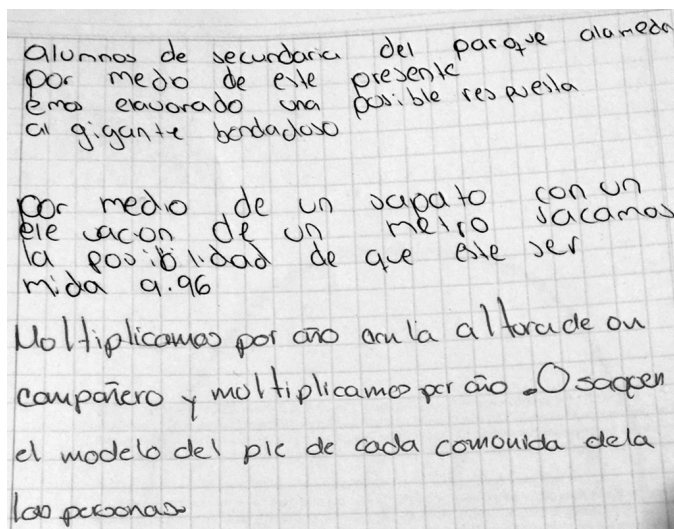 alumnos de secundaria del parque alameda
por medio de este presente
emos elavorado una posible respuesta
al gigante bondadoso
por medio de un sapato con un
ele vacion de un metro sacamos
la posibilidad de que este ser
mida 9.96
Moltiplicamos por año la altora de on
compañero y moltiplicamos por año. O saquen
el modelo del pie de cada comonida dela
las personas